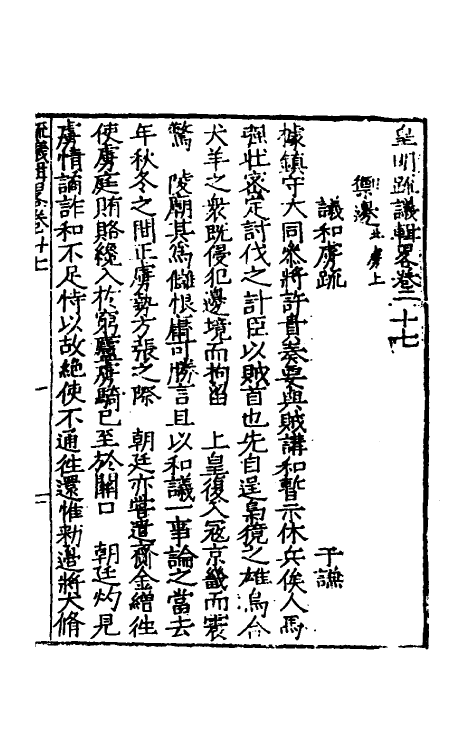 皇明疏議輯畧卷二十七
禦邊五 虜上
議和虜疏 于謙
據鎮守大同叅將許貴奏要與賊講和暫示休兵俟人馬
強壯密定討伐之計臣以賊首也先自逞梟獍之雄烏合
犬羊之衆既侵犯邊境而拘留 上皇復入寇京畿而震
驚 陵廟其為讎恨庸可勝言且以和議一事論之當去
年秋冬之間正虜勢方張之際 朝廷亦嘗遣齎金繒徃
使虜庭賄賂纔入於窮廬虜騎已至於關口 朝廷灼見
虜情譎詐和不足恃以故絶使不通徃還惟勑邉將大脩
疏議輯畧卷廿七 一